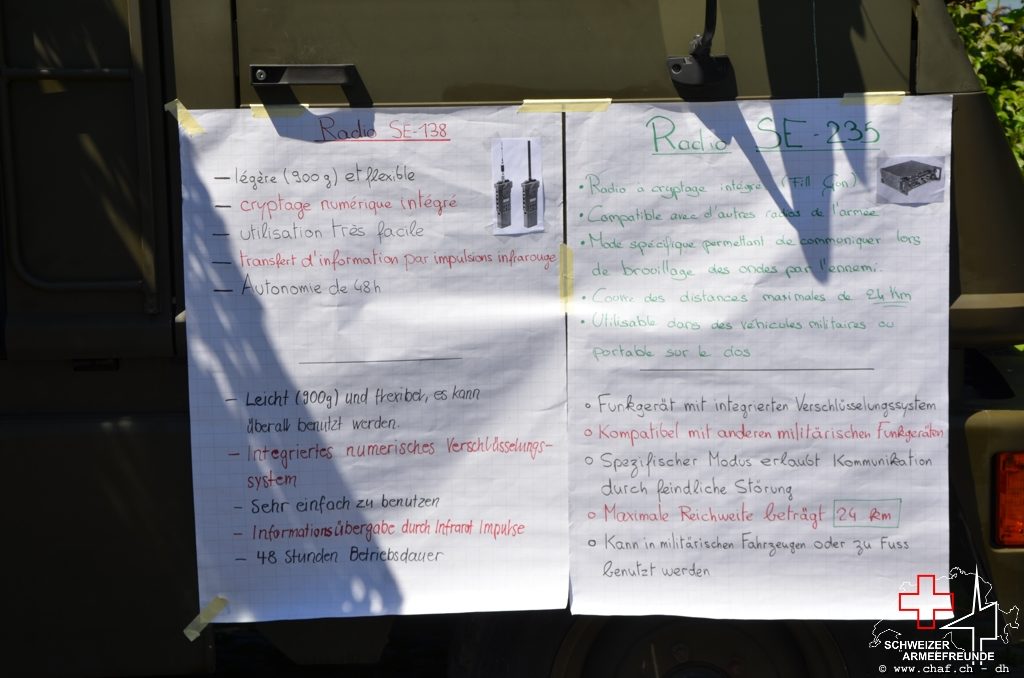 Radio SE-138
— légère (900g) et flexible
— cryptage numérique intégré
— utilisation très facile
— transfert d'information par impulsions infrarouge
— Autonomie de 48h
— Leicht (900g) und flexibel, es kann
überall benutzt werden.
— Integriertes numerisches Verschlüsselungs-
system
— Sehr einfach zu benutzen
— Informationsübergabe durch Infrarot Impulse
— 48 Stunden Betriebsdauer
Radio SE-235
• Radio à cryptage intégré (Fill Gun)
• Compatible avec d'autres radios de l'armée
• Mode spécifique permettant de communiquer lors
de brouillage des ondes par l'ennemi.
• Couvre des distances maximales de 24 Km
• Utilisable dans des véhicules militaires ou
portable sur le dos
o Funkgerät mit integrierten Verschlüsselungssystem
o Kompatibel mit anderen militärischen Funkgeräten
o Spezifischer Modus erlaubt Kommunikation
durch feindliche Störung
o Maximale Reichweite beträgt 24 km
o Kann in militärischen Fahrzeugen oder zu Fuss
benutzt werden
SCHWEIZER
ARMEEFREUNDE
© www.chaf.ch - dh